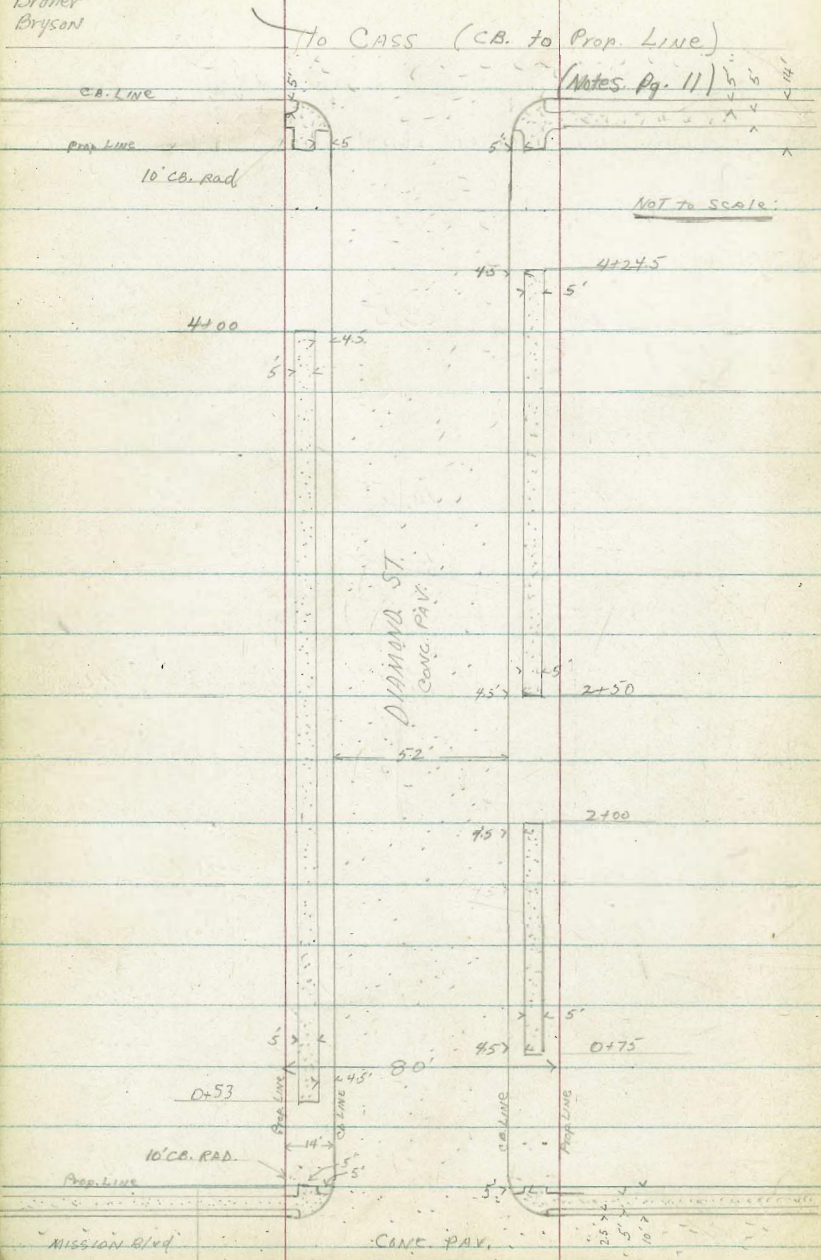 Bryson
To CASS (CB. to Prop. Line)
(Notes. Pg. 11) 5' 5' 14'
5'
CB. LINE
Prop. LINE
5
5'
10' CB. Rad
NOT to SCALE:
4.5 4+24.5
5'
4+00
4.5
5'
DIAMOND ST.
CONC. PAV.
5'
4.5' 2+50
52'
2+00
4.5
5'
5'
4.5 0+75
80'
4.5'
0+53
Prop. LINE
CB LINE
CB LINE
Prop. LINE
14'
10' CB. RAD.
5'
5'
Prop. Line
5'
2.5' 5' 10'
MISSION Blvd
CONC. PAV.